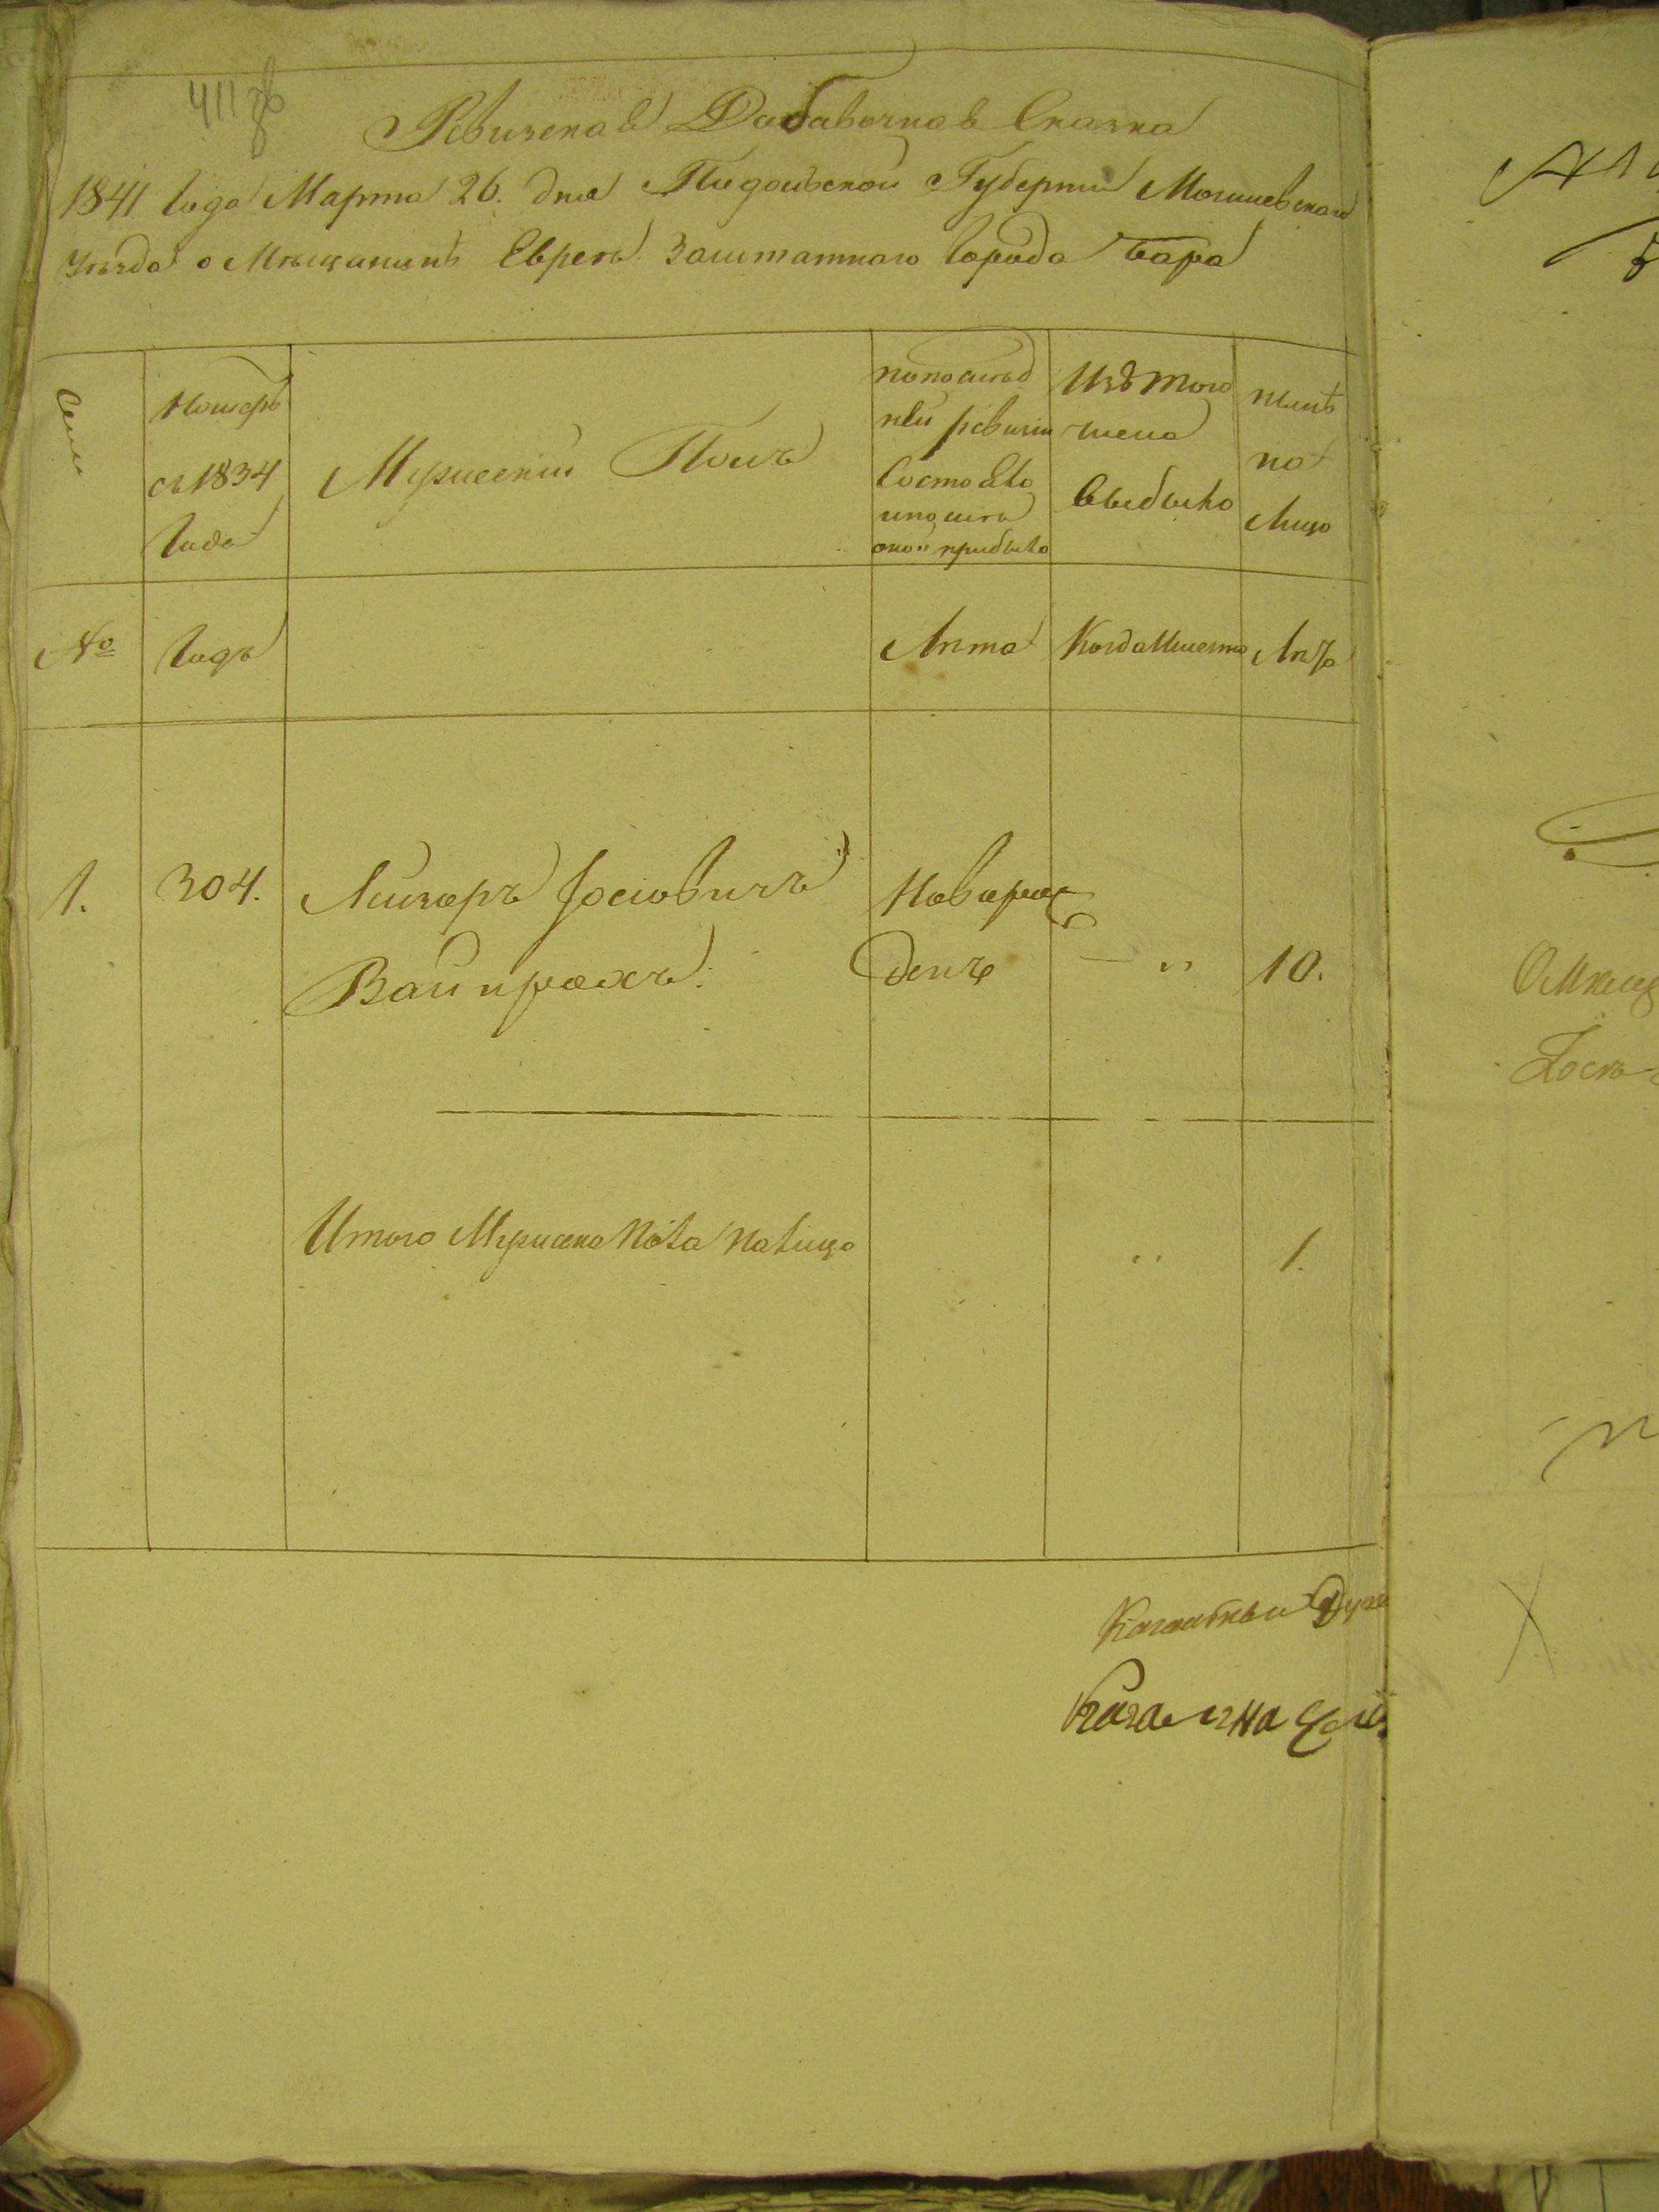 411 зв
Ревизская Добавочная Сказка
1841 Года Марта 26. дня Подольской Губернии Могилевского
уезда о Мещанинѣ Еврею Заштатного города Бара
Семьи
Номеръ
съ 1834
Года
Мужеский Полъ
по послѣд
ней ревизіи
Состояло
и послѣ
оной прибыло
Изъ того
числа
выбыло
нынѣ
на
Лицо
№
Годъ
Лѣта
Когда Именно
Лѣтъ
1.
304.
Лейзеръ Іосіовичъ
Вайпрахъ.
Новорож
денъ
— "
10.
Итого Мужеска пола налицо
"
1.
Кагальный